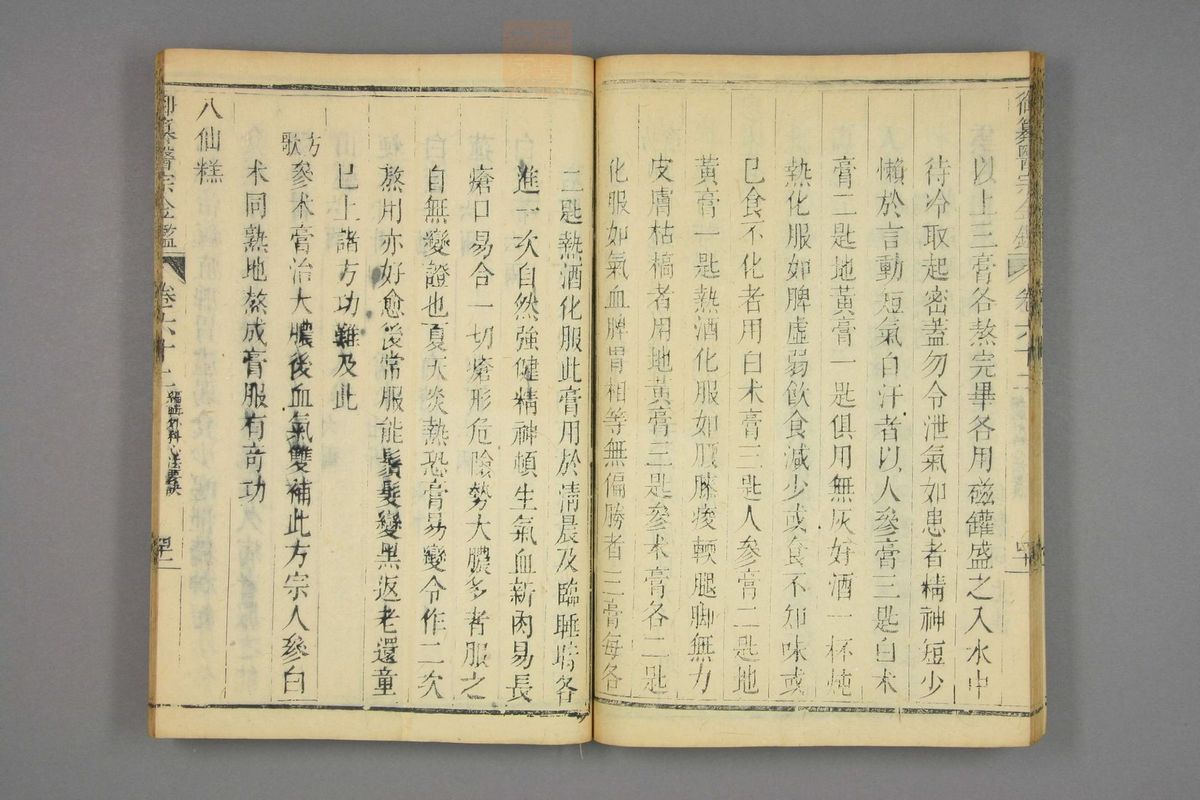 御纂醫宗金鑑 卷六十二
以上三膏各熬完畢各用磁罐盛之入水中
待冷取起密蓋勿令泄氣如患者精神短少
懶於言動短氣自汗者以人參膏三匙白术
膏二匙地黃膏一匙俱用無灰好酒一杯燉
熱化服如脾虛弱飲食減少或食不知味或
已食不化者用白术膏三匙人參膏二匙地
黃膏一匙熱酒化服如腰膝痠輭腿脚無力
皮膚枯槁者用地黃膏三匙參术膏各二匙
化服如氣血脾胃相等無偏勝者三膏每各
二匙熱酒化服此膏用於清晨及臨睡時各
進一次自然強健精神頓生氣血新肉易長
瘡口易合一切瘡形危險勢大膿多者服之
自無變證也夏天炎熱恐膏易變令作二次
熬用亦好愈後常服能鬚髮變黑返老還童
已上諸方功難及此
方歌
參术膏治大膿後血氣雙補此方宗人參白
术同熟地熬成膏服有奇功
八仙糕
御纂醫宗金鑑 卷六十二 編輯外科心法要訣